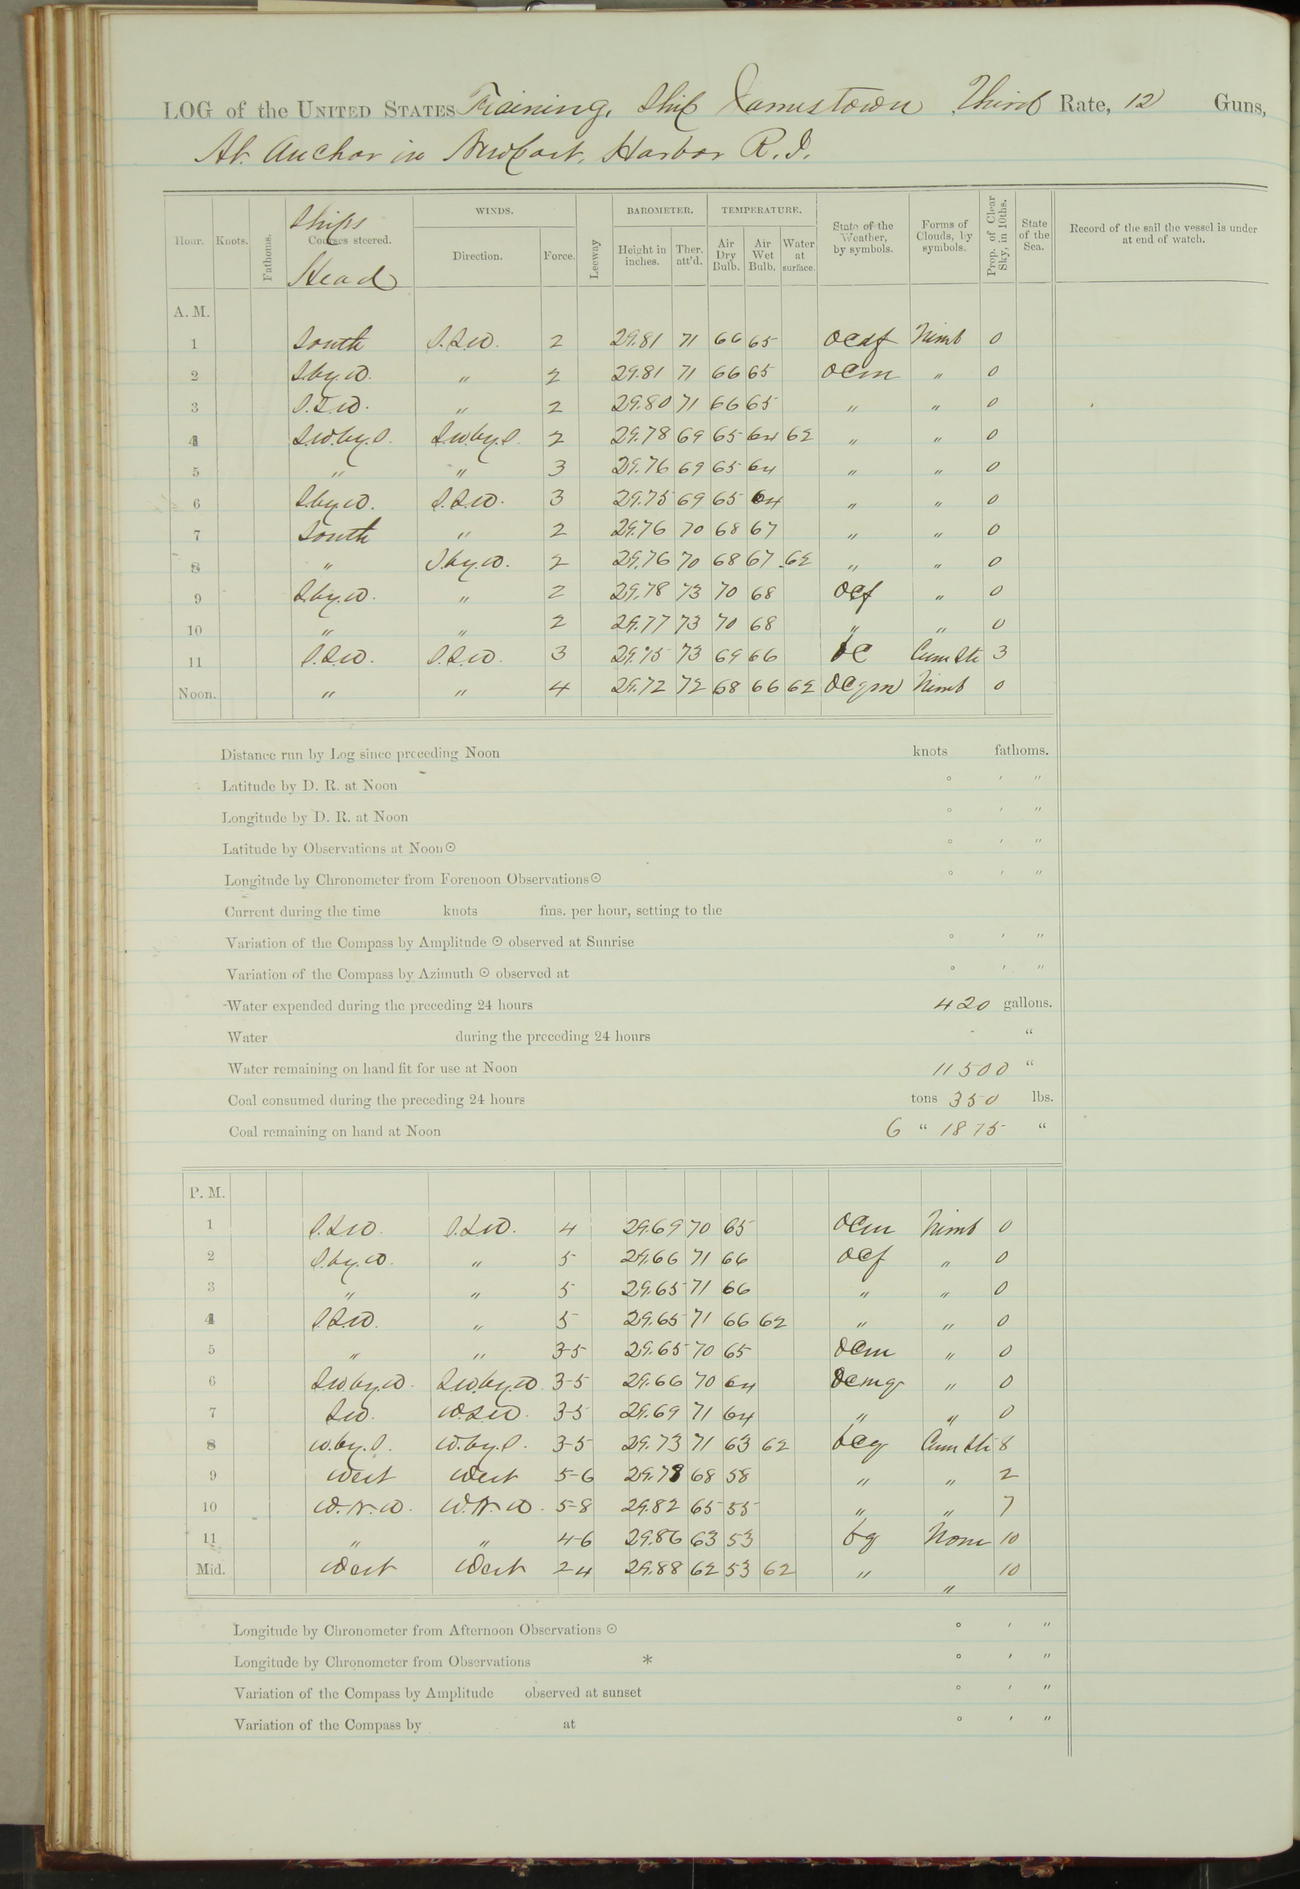 LOG of the UNITED STATES Training Ship Jamestown Third Rate, 12 Guns,
At Anchor in Newport, Harbor R.I.
Hour. Knots. Fathoms. Ships Courses steered. Head WINDS. Direction. Force. Leeway BAROMETER. Height in inches. Ther. att'd. TEMPERATURE. Air Dry Bulb. Air Wet Bulb. Water at surface. State of the Weather, by symbols. Forms of Clouds, by symbols. Prop. of Clear Sky, in 10ths. State of the Sea. Record of the sail the vessel is under at end of watch.
A. M.
1 South S.S.W. 2 29.81 71 66 65 Nimb 0
2 S.by.W. " 2 29.81 71 66 65 ocm " 0
3 S.S.W. " 2 29.80 71 66 65 " " 0
4 S.W.by.S. S.W.by.S. 2 29.78 69 65 64 62 " " 0
5 " " 3 29.76 69 65 64 " " 0
6 S.by.W. S.S.W. 3 29.75 69 65 64 " " 0
7 South " 2 29.76 70 68 67 " " 0
8 " S.by.W. 2 29.76 70 68 67 62 " " 0
9 S.by.W. " 2 29.78 73 70 68 ocf " 0
10 " " 2 29.77 73 70 68 " " 0
11 S.S.W. S.S.W. 3 29.75 73 69 66 bc Cum Str 3
Noon. " " 4 29.72 72 68 66 62 ocgm Nimb 0
Distance run by Log since preceding Noon knots fathoms.
Latitude by D. R. at Noon ° ' "
Longitude by D. R. at Noon ° ' "
Latitude by Observations at Noon ☉ ° ' "
Longitude by Chronometer from Forenoon Observations ☉ ° ' "
Current during the time knots fms. per hour, setting to the
Variation of the Compass by Amplitude ☉ observed at Sunrise ° ' "
Variation of the Compass by Azimuth ☉ observed at ° ' "
Water expended during the preceding 24 hours 420 gallons.
Water during the preceding 24 hours - "
Water remaining on hand fit for use at Noon 11500 "
Coal consumed during the preceding 24 hours tons 350 lbs.
Coal remaining on hand at Noon 6 " 1875 "
P. M.
1 S.S.W. S.S.W. 4 29.69 70 65 ocm Nimb 0
2 S.by.W. " 5 29.66 71 66 ocf " 0
3 " " 5 29.65 71 66 " " 0
4 S.S.W. " 5 29.65 71 66 62 " " 0
5 " " 3-5 29.65 70 65 ocm " 0
6 S.W.by.W. S.W.by.W. 3-5 29.66 70 64 ocmg " 0
7 S.W. W.S.W. 3-5 29.69 71 64 " " 0
8 W.by.S. W.by.S. 3-5 29.73 71 63 62 bcg Cum Str 8
9 West West 5-6 29.78 68 58 " " 2
10 W.N.W. W.N.W. 5-8 29.82 65 55 " " 7
11 " " 4-6 29.86 63 53 bg None 10
Mid. West West 2-4 29.88 62 53 62 " " 10
Longitude by Chronometer from Afternoon Observations ☉ ° ' "
Longitude by Chronometer from Observations * ° ' "
Variation of the Compass by Amplitude observed at sunset ° ' "
Variation of the Compass by at ° ' "